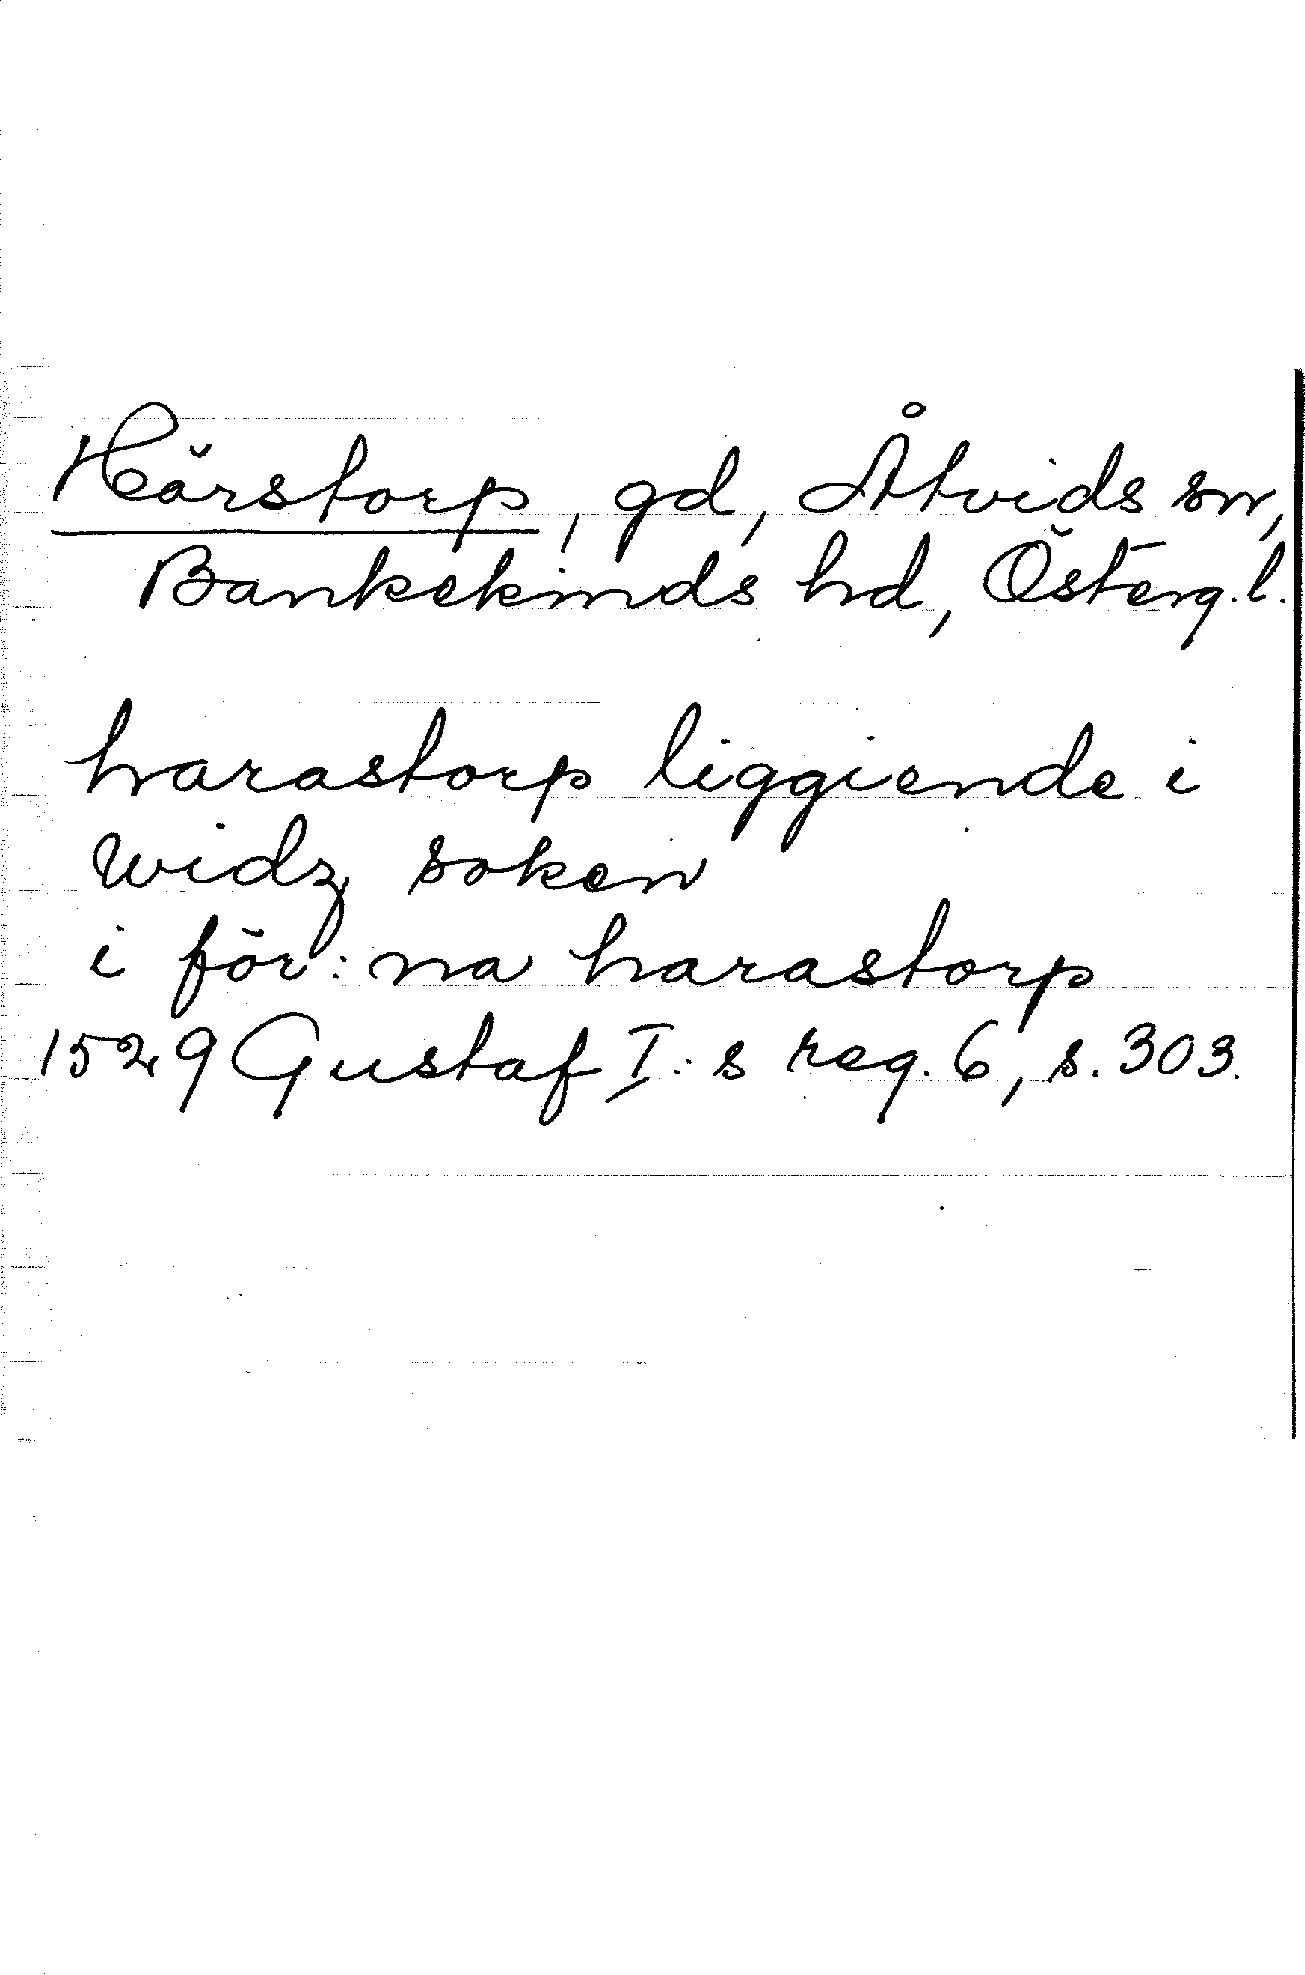 Härstorp, gd, Åtvids sn,
Bankekinds hd, Österg. l.
harastorp liggiende i
widz soken
i för: na harastorp
1529 Gustaf I:s reg. 6, s. 303.